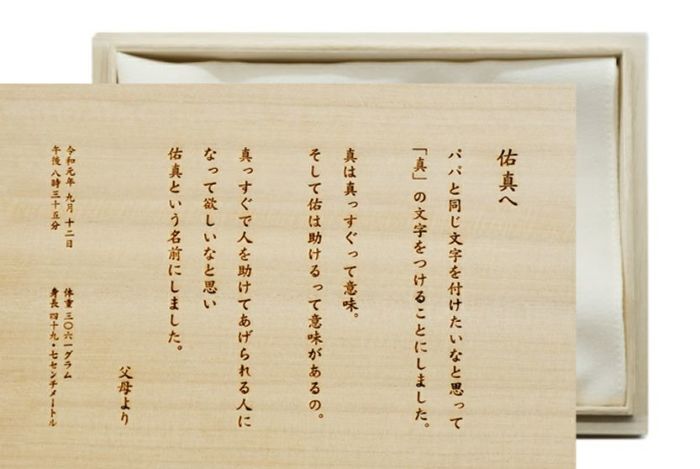 佑真へ
パパと同じ文字を付けたいなと思って
「真」の文字をつけることにしました。
真は真っすぐって意味。
そして佑は助けるって意味があるの。
真っすぐで人を助けてあげられる人に
なって欲しいなと思い
佑真という名前にしました。
父母より
令和元年 九月 十二日
午後 八時三十五分
体重 三〇六一グラム
身長 四十九・七センチメートル